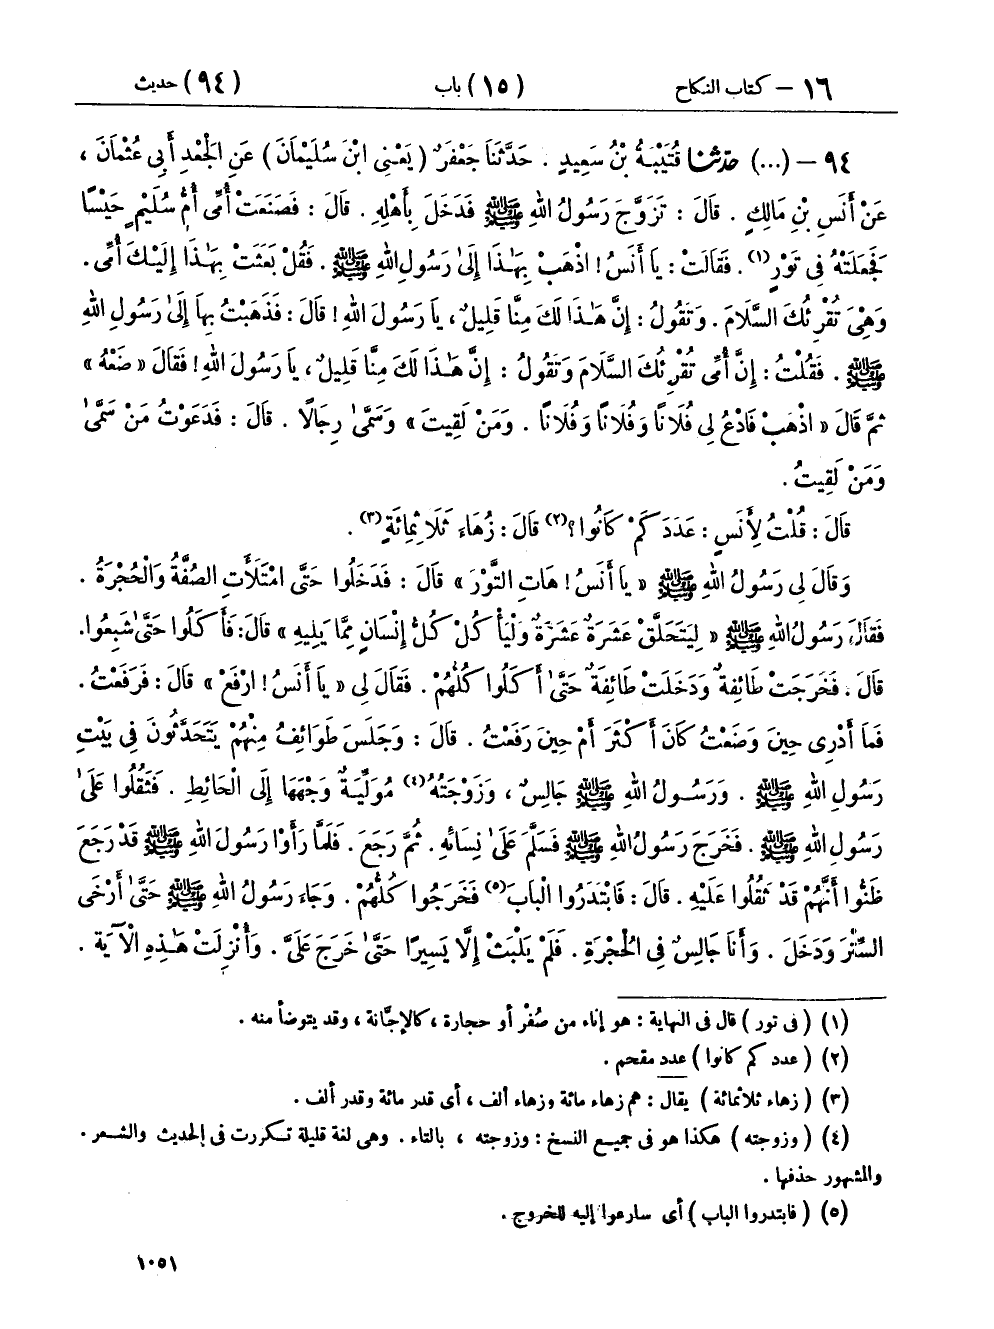 ١٦ – كتاب النكاح (١٥) باب (٩٤) حديث
٩٤ – (...) حَدَّثَنَا قُتَيْبَةُ بْنُ سَعِيدٍ . حَدَّثَنَا جَعْفَرٌ ( يَعْنِي ابْنَ سُلَيْمَانَ ) عَنِ الْجَعْدِ أَبِي عُثْمَانَ ،
عَنْ أَنَسِ بْنِ مَالِكٍ . قَالَ : تَزَوَّجَ رَسُولُ اللهِ ﷺ فَدَخَلَ بِأَهْلِهِ . قَالَ : فَصَنَعَتْ أُمِّي أُمُّ سُلَيْمٍ حَيْسًا
فَجَعَلَتْهُ فِي تَوْرٍ (١) . فَقَالَتْ : يَا أَنَسُ ! اذْهَبْ بِهَٰذَا إِلَىٰ رَسُولِ اللهِ ﷺ . فَقُلْ بَعَثَتْ بِهَٰذَا إِلَيْكَ أُمِّي .
وَهْيَ تُقْرِئُكَ السَّلَامَ . وَتَقُولُ : إِنَّ هَٰذَا لَكَ مِنَّا قَلِيلٌ ، يَا رَسُولَ اللهِ ! قَالَ : فَذَهَبْتُ بِهَا إِلَىٰ رَسُولِ اللهِ
ﷺ . فَقُلْتُ : إِنَّ أُمِّي تُقْرِئُكَ السَّلَامَ وَتَقُولُ : إِنَّ هَٰذَا لَكَ مِنَّا قَلِيلٌ ، يَا رَسُولَ اللهِ ! فَقَالَ « ضَعْهُ »
ثُمَّ قَالَ « اذْهَبْ فَادْعُ لِي فُلَانًا وَفُلَانًا وَفُلَانًا . وَمَنْ لَقِيتَ » وَسَمَّىٰ رِجَالًا . قَالَ : فَدَعَوْتُ مَنْ سَمَّىٰ
وَمَنْ لَقِيتُ .
قَالَ : قُلْتُ لِأَنَسٍ : عَدَدَ كَمْ كَانُوا ؟ (٢) قَالَ : زُهَاءَ ثَلَاثِمِائَةٍ (٣) .
وَقَالَ لِي رَسُولُ اللهِ ﷺ « يَا أَنَسُ ! هَاتِ التَّوْرَ » قَالَ : فَدَخَلُوا حَتَّى امْتَلَأَتِ الصُّفَّةُ وَالْحُجْرَةُ .
فَقَالَ رَسُولُ اللهِ ﷺ « لِيَتَحَلَّقْ عَشَرَةٌ عَشَرَةٌ وَلْيَأْكُلْ كُلُّ إِنْسَانٍ مِمَّا يَلِيهِ » قَالَ : فَأَكَلُوا حَتَّىٰ شَبِعُوا .
قَالَ . فَخَرَجَتْ طَائِفَةٌ وَدَخَلَتْ طَائِفَةٌ حَتَّىٰ أَكَلُوا كُلُّهُمْ . فَقَالَ لِي « يَا أَنَسُ ! ارْفَعْ » قَالَ : فَرَفَعْتُ .
فَمَا أَدْرِي حِينَ وَضَعْتُ كَانَ أَكْثَرَ أَمْ حِينَ رَفَعْتُ . قَالَ : وَجَلَسَ طَوَائِفُ مِنْهُمْ يَتَحَدَّثُونَ فِي بَيْتِ
رَسُولِ اللهِ ﷺ . وَرَسُولُ اللهِ ﷺ جَالِسٌ ، وَزَوْجَتُهُ (٤) مُوَلِّيَةٌ وَجْهَهَا إِلَى الْحَائِطِ . فَثَقُلُوا عَلَىٰ
رَسُولِ اللهِ ﷺ . فَخَرَجَ رَسُولُ اللهِ ﷺ فَسَلَّمَ عَلَىٰ نِسَائِهِ . ثُمَّ رَجَعَ . فَلَمَّا رَأَوْا رَسُولَ اللهِ ﷺ قَدْ رَجَعَ
ظَنُّوا أَنَّهُمْ قَدْ ثَقُلُوا عَلَيْهِ . قَالَ : فَابْتَدَرُوا الْبَابَ (٥) فَخَرَجُوا كُلُّهُمْ . وَجَاءَ رَسُولُ اللهِ ﷺ حَتَّىٰ أَرْخَى
السِّتْرَ وَدَخَلَ . وَأَنَا جَالِسٌ فِي الْحُجْرَةِ . فَلَمْ يَلْبَثْ إِلَّا يَسِيرًا حَتَّىٰ خَرَجَ عَلَيَّ . وَأُنْزِلَتْ هَٰذِهِ الْآيَةُ .
(١) ( في تور ) قال في النهاية : هو إناء من صُفْر أو حجارة ، كالإجّانة ، وقد يتوضأ منه .
(٢) ( عدد كم كانوا ) عدد مقحم .
(٣) ( زهاء ثلاثمائة ) يقال : هم زهاء مائة وزهاء ألف ، أي قدر مائة وقدر ألف .
(٤) ( وزوجته ) هكذا هو في جميع النسخ : وزوجته ، بالتاء . وهي لغة قليلة تكررت في الحديث والشعر .
والمشهور حذفها .
(٥) ( فابتدروا الباب ) أي سارعوا إليه للخروج .
١٠٥١